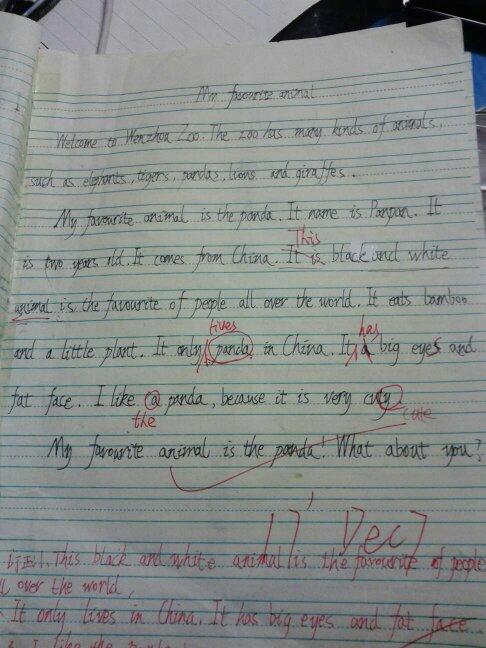 My favourite animal
Welcome to Wenzhou Zoo. The zoo has many kinds of animals,
such as elephants, tigers, pandas, lions and giraffes.
My favourite animal is the panda. It name is Panpan. It
This
is two years old. It comes from China. It is black and white
animal is the favourite of people all over the world. It eats bamboo
lives has
and a little plant. It only panda in China. It a big eyes and
fat face. I like a panda, because it is very cuty
the cute
My favourite animal is the panda! What about you?
17' Dec
订正: This black and white animal is the favourite of people
over the world,
It only lives in China. It has big eyes and fat face.
I like the